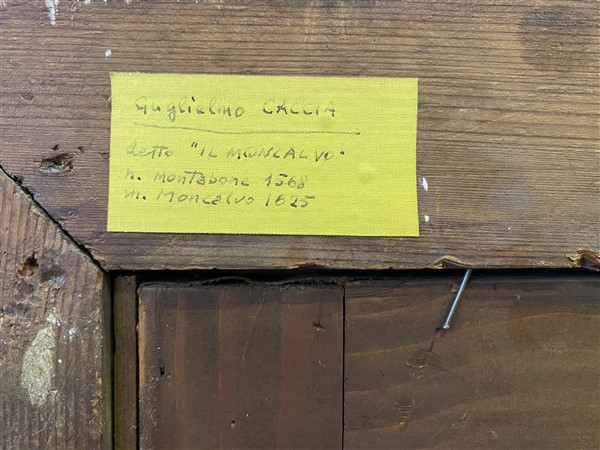 Guglielmo CACCIA
detto "IL MONCALVO"
n. Montabone 1568
m. Moncalvo 1625